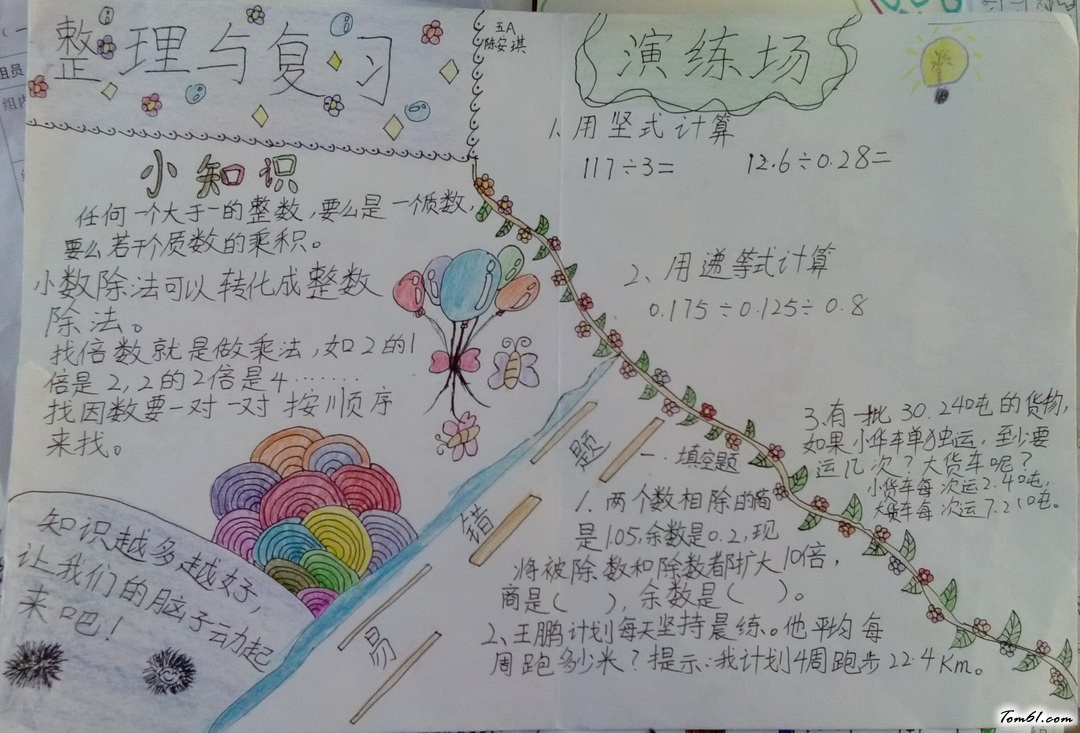 整理与复习
五A
陈安琪
小知识
任何一个大于一的整数，要么是一个质数，
要么若干个质数的乘积。
小数除法可以转化成整数
除法。
找倍数就是做乘法，如2的1
倍是2，2的2倍是4……
找因数要一对一对按顺序
来找。
知识越多越好，
让我们的脑子动起
来吧！
演练场
1、用竖式计算
117÷3=
12.6÷0.28=
2、用递等式计算
0.175÷0.125÷0.8
3、有一批30.240吨的货物，
如果小货车单独运，至少要
运几次？大货车呢？
小货车每次运2.40吨，
大货车每次运7.210吨。
易错题
一、填空题
1、两个数相除的商
是1.05，余数是0.2，现
将被除数和除数都扩大10倍，
商是（　），余数是（　）。
2、王鹏计划每天坚持晨练。他平均每
周跑多少米？提示：我计划4周跑步22.4Km。
组员
组内
Tom61.com